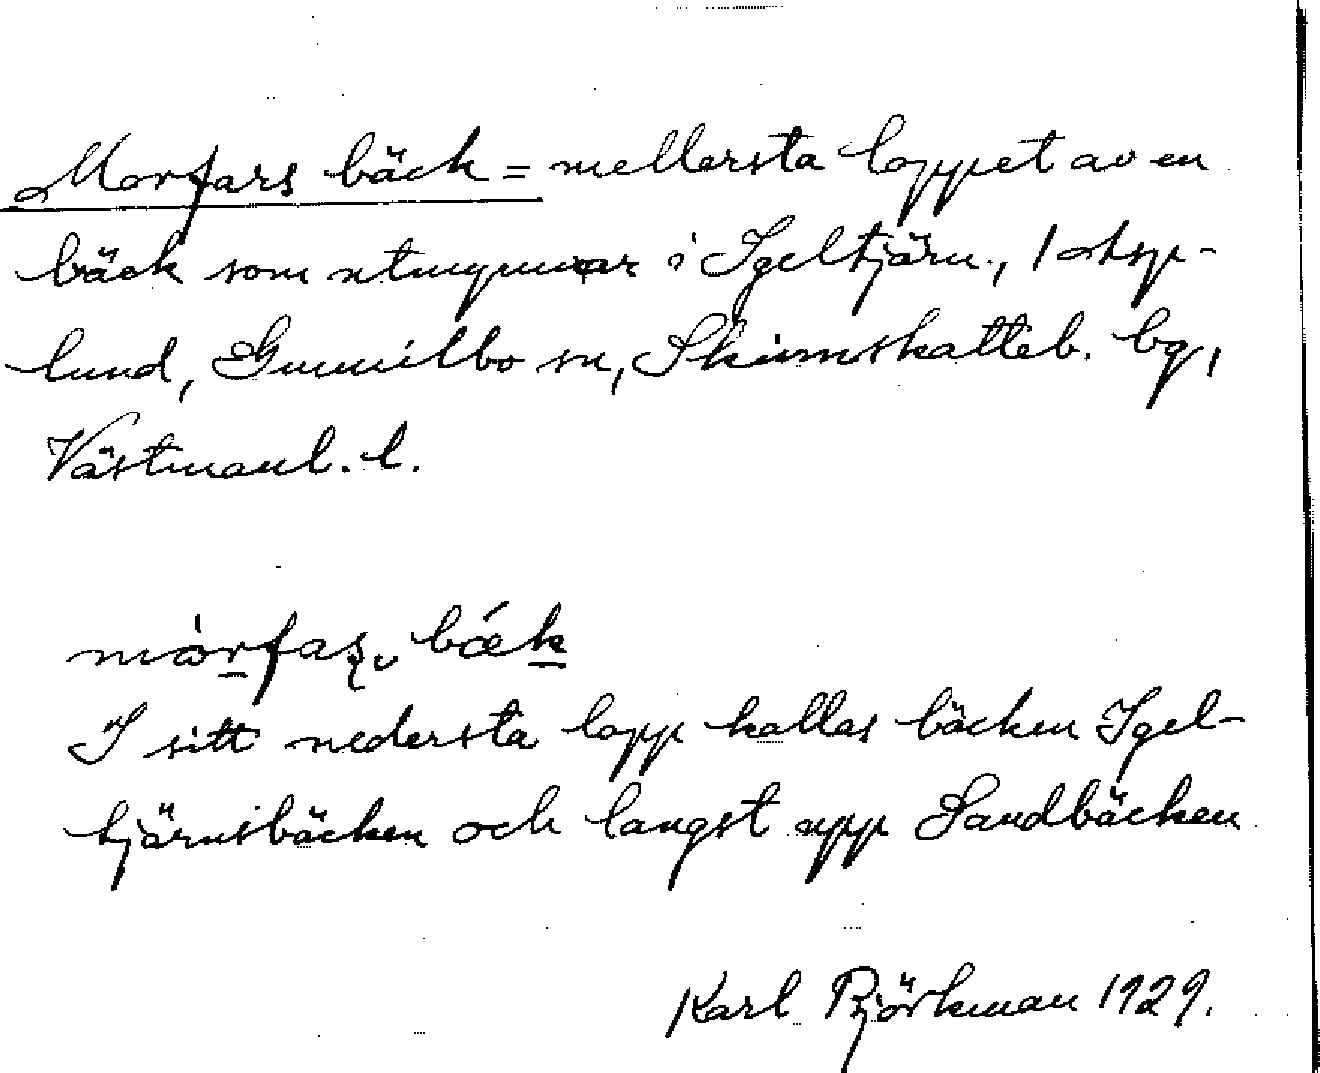 Morfars bäck = mellersta loppet av en
bäck som utmynnar i Igeltjärn., 1 Asp-
lund, Gunnilbo sn, Skinnskatteb. bg,
Västmanl. l.
mòrfaʂ bǽk
I sitt nedersta lopp kallas bäcken Igel-
tjärnsbäcken och langst upp Sandbäcken
Karl Björkman 1929.